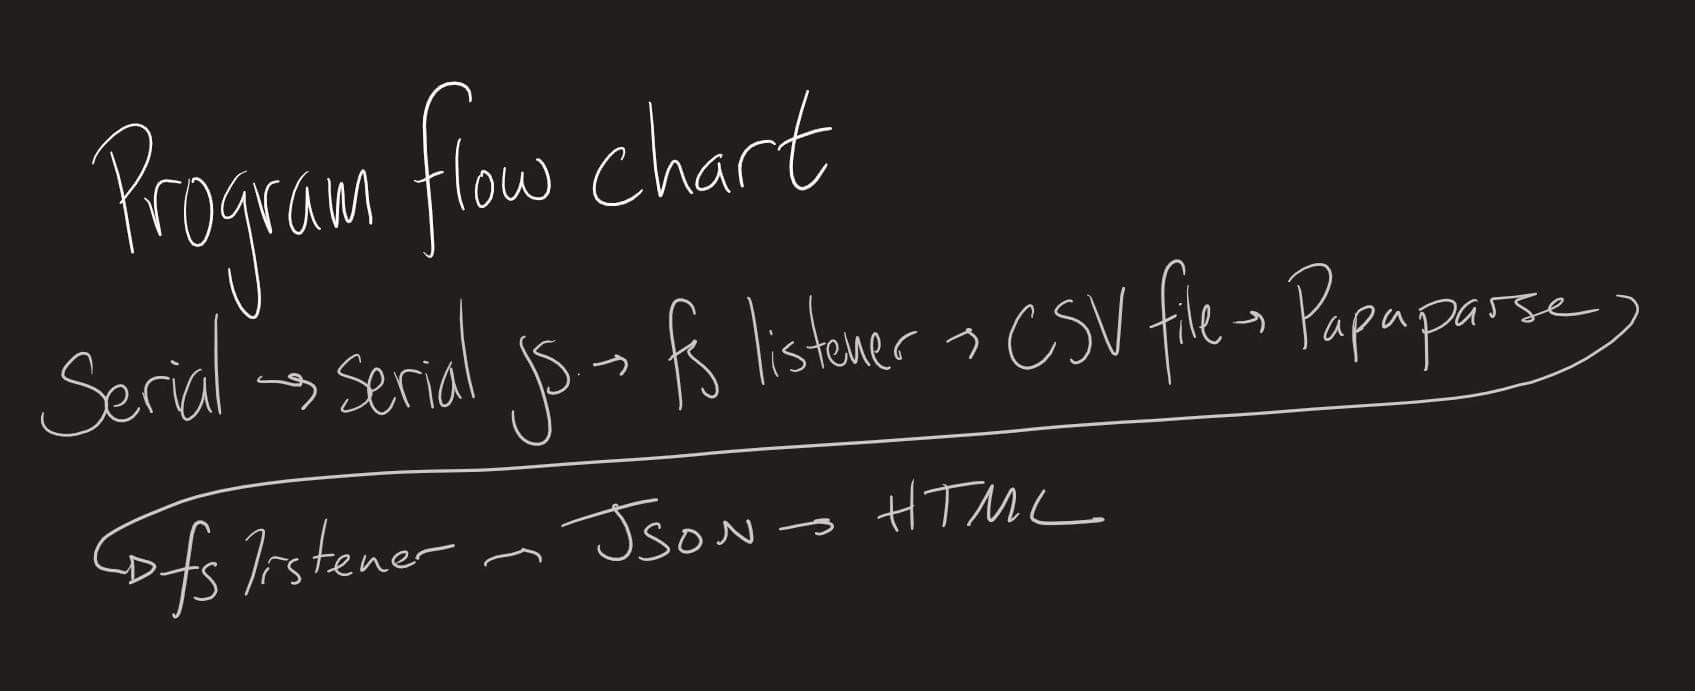 Program flow chart
Serial → serial js. → fs listener → CSV file → Papaparse
fs listener → JSON → HTML